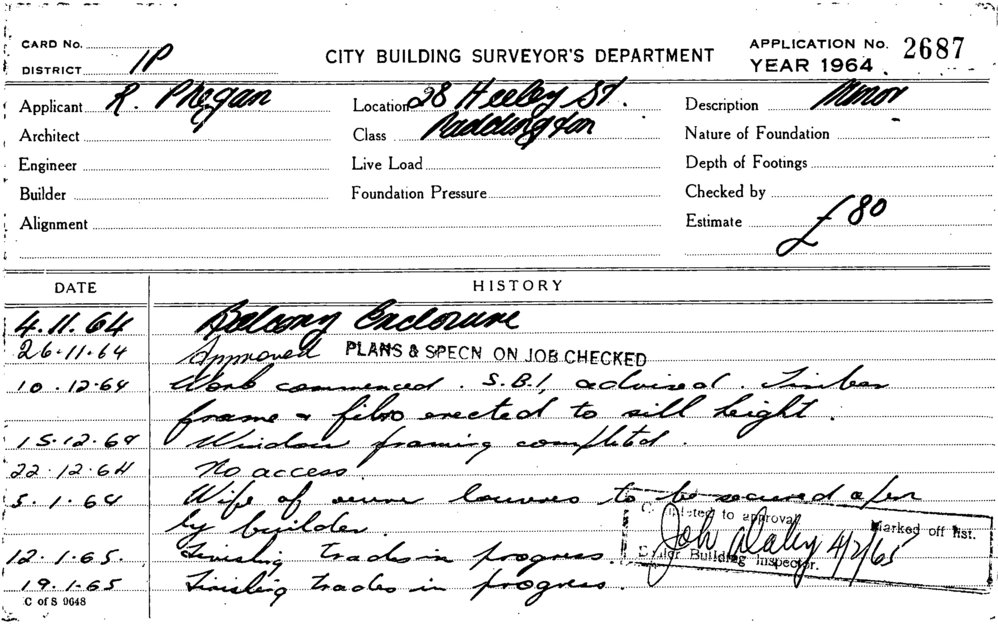 CARD No.
DISTRICT 1P
CITY BUILDING SURVEYOR'S DEPARTMENT
APPLICATION No. 2687
YEAR 1964
Applicant R. Phegan
Location 28 Heeley St.
Description Minor
Architect
Class Paddington
Nature of Foundation
Engineer
Live Load
Depth of Footings
Builder
Foundation Pressure
Checked by
Alignment
Estimate £80
DATE HISTORY
4.11.64 Balcony Enclosure
26.11.64 Approved PLANS & SPECN ON JOB CHECKED
10.12.64 Work commenced. S.B.I. advised. Timber
frame & fibro erected to sill height.
15.12.64 Window framing completed.
22.12.64 No access.
5.1.64 Wife of louvres to be secured
by builder.
12.1.65. Finishing Trades in progress.
19.1.65 Finishing Trades in progress.
Completed to approval
Marked off list.
Senior Building Inspector.
Joh Daley 4/2/65
C of S 9648